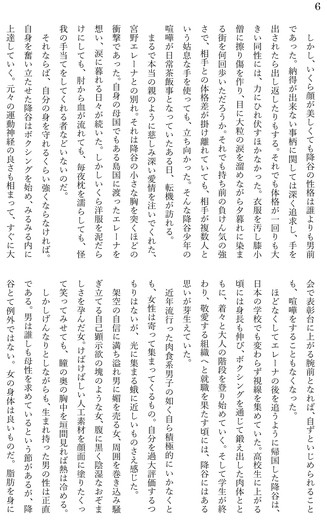 6
しかし、いくら顔が美しくても降谷の性格は誰よりも男前
であった。納得が出来ない事柄に関しては深く追求し、手を
出されたら出し返したりもする。それでも体格が一回りも大
きい同性には、力にひれ伏すほかなかった。衣服を汚し膝小
僧に擦り傷を作り、目に大粒の涙を溜めながら夕暮れに染ま
る街を何回歩いただろうか。それでも持ち前の負けん気の強
さで、相手との体格差が掛け離れていても、相手が複数人と
いう姑息な手を使っても、立ち向かった。そんな降谷少年の
喧嘩が日常茶飯事となっていたある日、転機が訪れる。
まるで本当の親のように慈しみ深い愛情を注いでくれた、
宮野エレーナとの別れ。それは降谷の小さな胸を突くほどの
衝撃であった。自身の母国でもある島国に渡ったエレーナを
想い、涙に暮れる日々が続いた。しかしいくら洋服を泥だら
けにしても、肘から血が流れても、毎夜枕を濡らしても、怪
我の手当てをしてくれる者などいないのだ。
それならば、自分の身を守れるくらい強くならなければ。
自身を奮い立たせた降谷はボクシングを始め、みるみる内に
上達していく。元々の運動神経の良さも相まって、すぐに大
会で表彰台に上がる腕前となれば、自ずといじめられること
も、喧嘩をすることもなくなった。
ほどなくしてエレーナの後を追うように帰国した降谷は、
日本の学校でも変わらず視線を集めていた。高校生に上がる
頃には身長も伸び、ボクシングを通じて鍛え出した肉体とと
もに、着々と大人の階段を登り始めていく。そして学生が終
わり、敬愛する組織へと就職を果たす頃には、降谷にはある
思いが芽生えていた。
近年流行した肉食系男子の如く自ら積極的にいかなくと
も、女性は寄って集まってくるもの。自分を過大評価するつ
もりはないが、光に集まる蛾に近しいものさえ感じた。
架空の自信に満ち溢れ男に媚を売る女、周囲を巻き込み騒
ぎ立てる自己顕示欲の塊のような女、腹に黒く陰湿なおぞま
しさを孕んだ女、けばけばしい人工素材を顔面に塗りたくっ
て笑ってみせても、瞳の奥の胸中を垣間見れば熱は冷める。
しかしげんなりとしながらも、生まれ持った男の性は正直
である。男は誰しも母性を求めているという節があるが、降
谷とて例外ではない。女の身体は良いものだ。脂肪を身に